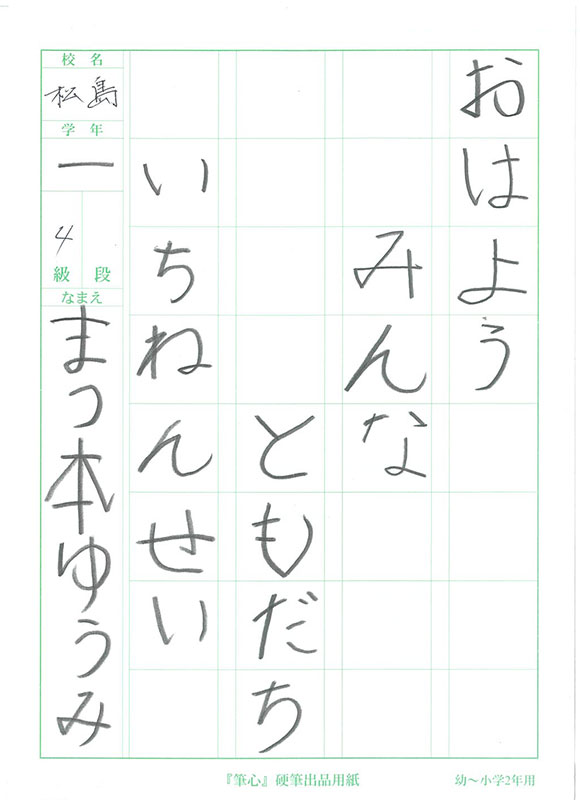 おはよう
みんな
ともだち
いちねんせい
校名
松島
学年
一
4
級段
なまえ
まつ本ゆうみ
『筆心』硬筆出品用紙
幼〜小学2年用